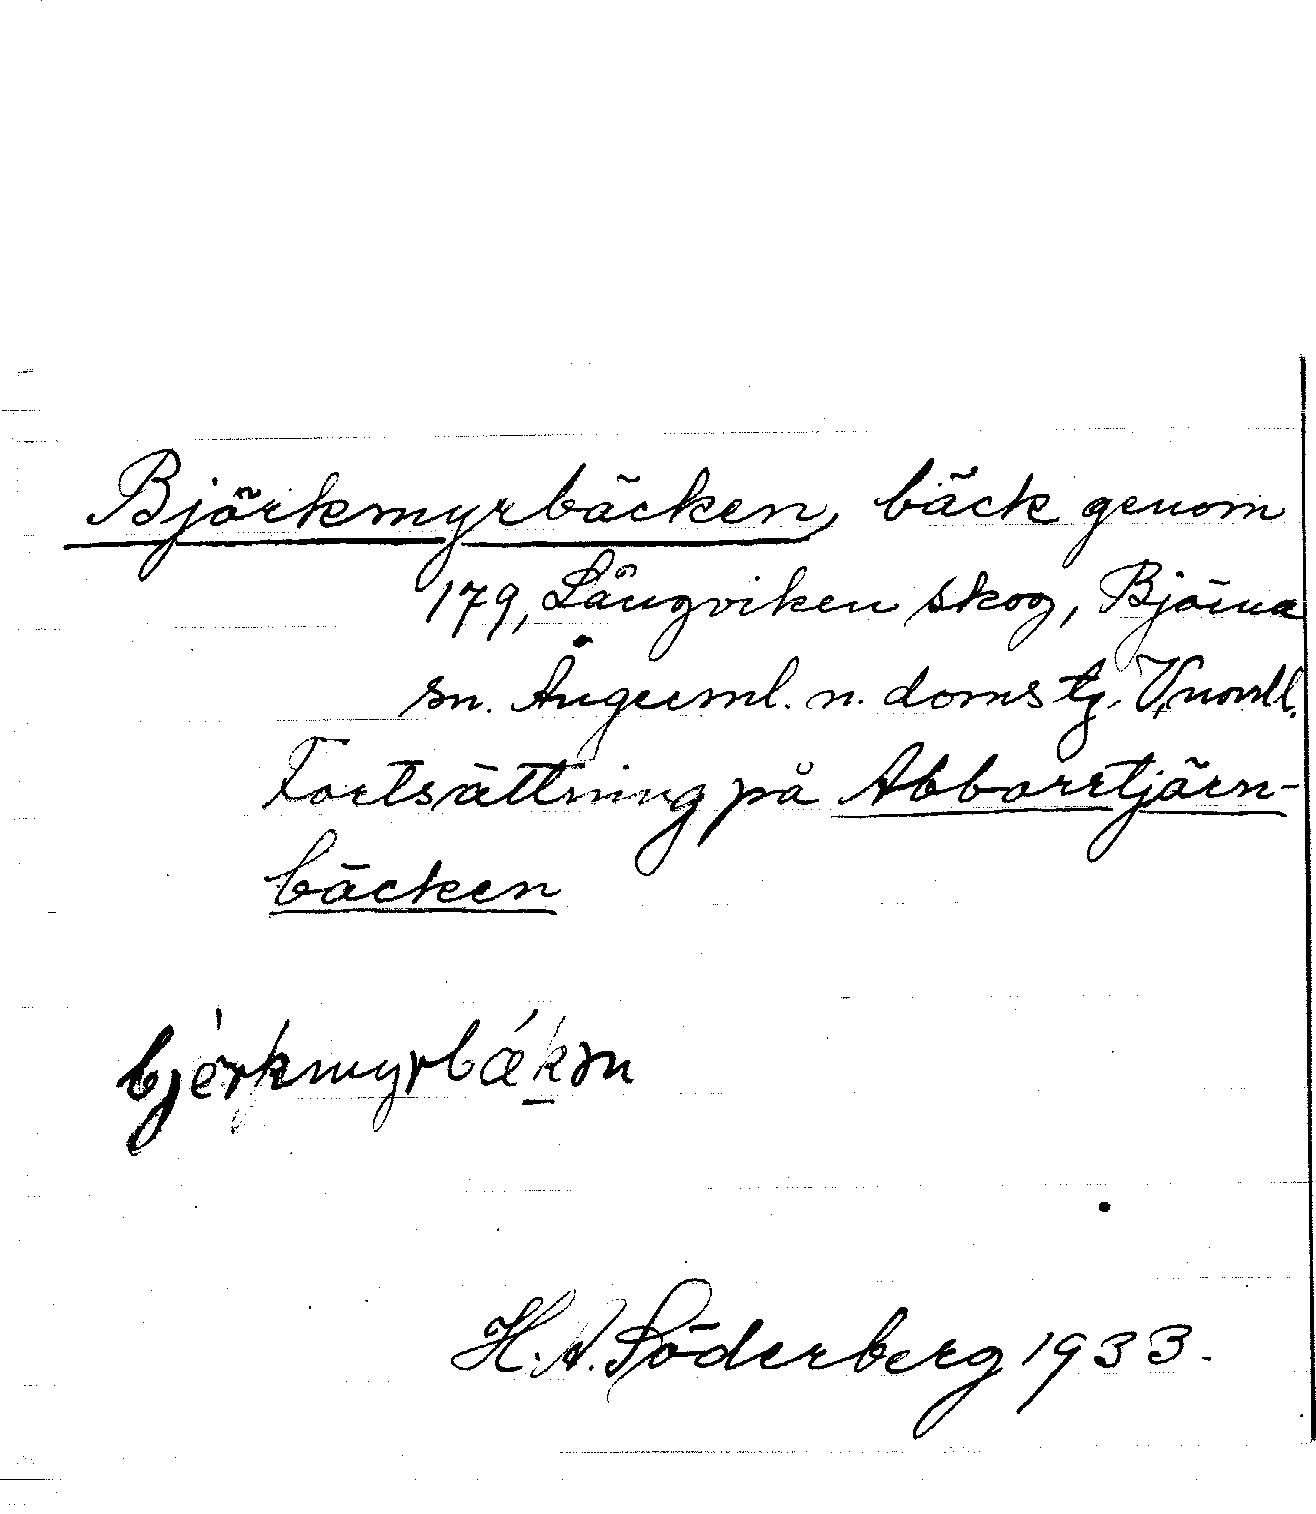 Björkmyrbäcken, bäck genom
179, Långviken skog, Björna
sn. Ångerml. n. doms tg. V,norrll.
Fortsättning på Abborrtjärn-
bäcken
bjèrkmyrbǽkən
H. A. Söderberg 1933.